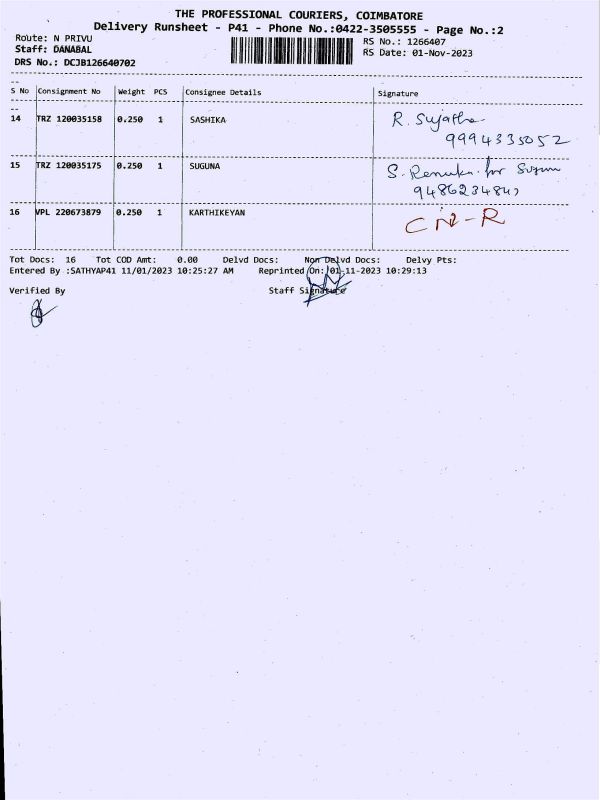 THE PROFESSIONAL COURIERS, COIMBATORE
Delivery Runsheet - P41 - Phone No.:0422-3505555 - Page No.:2
Route: N PRIVU RS No.: 1266407
Staff: DANABAL RS Date: 01-Nov-2023
DRS No.: DCJB126640702
S No Consignment No Weight PCS Consignee Details Signature
14 TRZ 120035158 0.250 1 SASHIKA R. Sujatha
9994335052
15 TRZ 120035175 0.250 1 SUGUNA S. Renuka for Suguna
9486234847
16 VPL 220673879 0.250 1 KARTHIKEYAN
Tot Docs: 16 Tot COD Amt: 0.00 Delvd Docs: Non Delvd Docs: Delvy Pts:
Entered By :SATHYAP41 11/01/2023 10:25:27 AM Reprinted On: 01-11-2023 10:29:13
Verified By Staff Signature